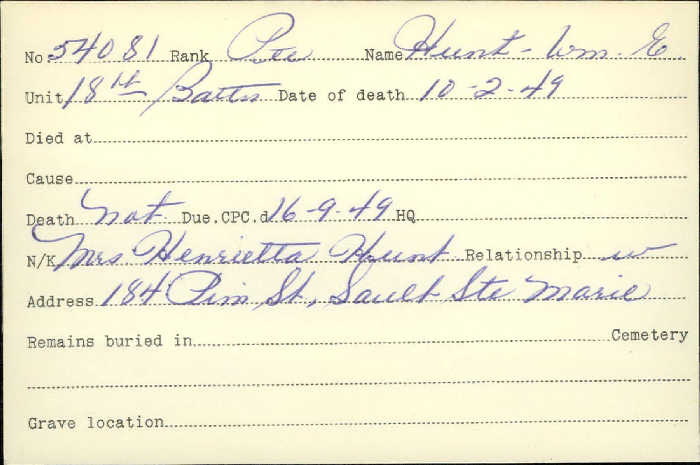 No. 54081 Rank Pte Name Hunt - Wm. E
Unit 18th Battn Date of death 10-2-49
Died at
Cause
Death not Due. CPC.d 16-9-49 HQ
N/K Mrs. Henrietta Hunt Relationship w
Address 184 Pim St, Sault Ste Marie
Remains buried in Cemetery
Grave location